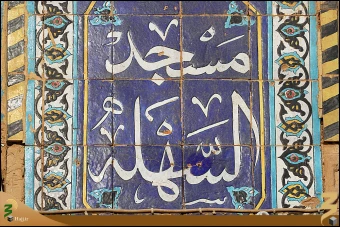 مَسْجِد
السَّهْلَة